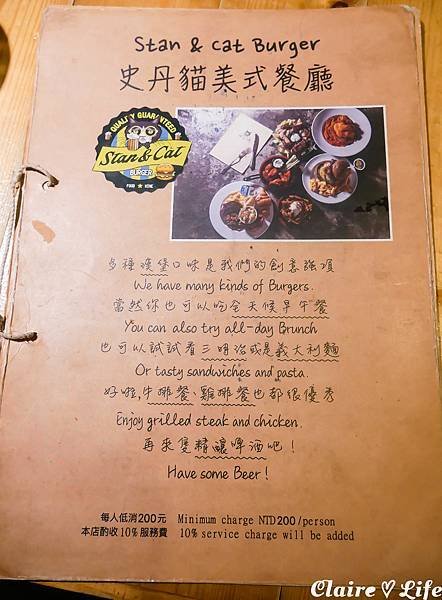 Stan & Cat Burger
史丹貓美式餐廳
QUALITY GUARANTEED
Stan & Cat
BURGER
多種漢堡口味是我們的創意強項
We have many kinds of Burgers.
當然你也可以吃全天候早午餐
You can also try all-day Brunch
也可以試試看三明治或是義大利麵
Or tasty sandwiches and pasta.
好啦,牛排餐 雞排餐也都很優秀
Enjoy grilled steak and chicken.
再來隻精釀啤酒吧!
Have some Beer!
每人低消200元 Minimum charge NTD200/person
本店酌收10%服務費 10% service charge will be added
Claire♡Life